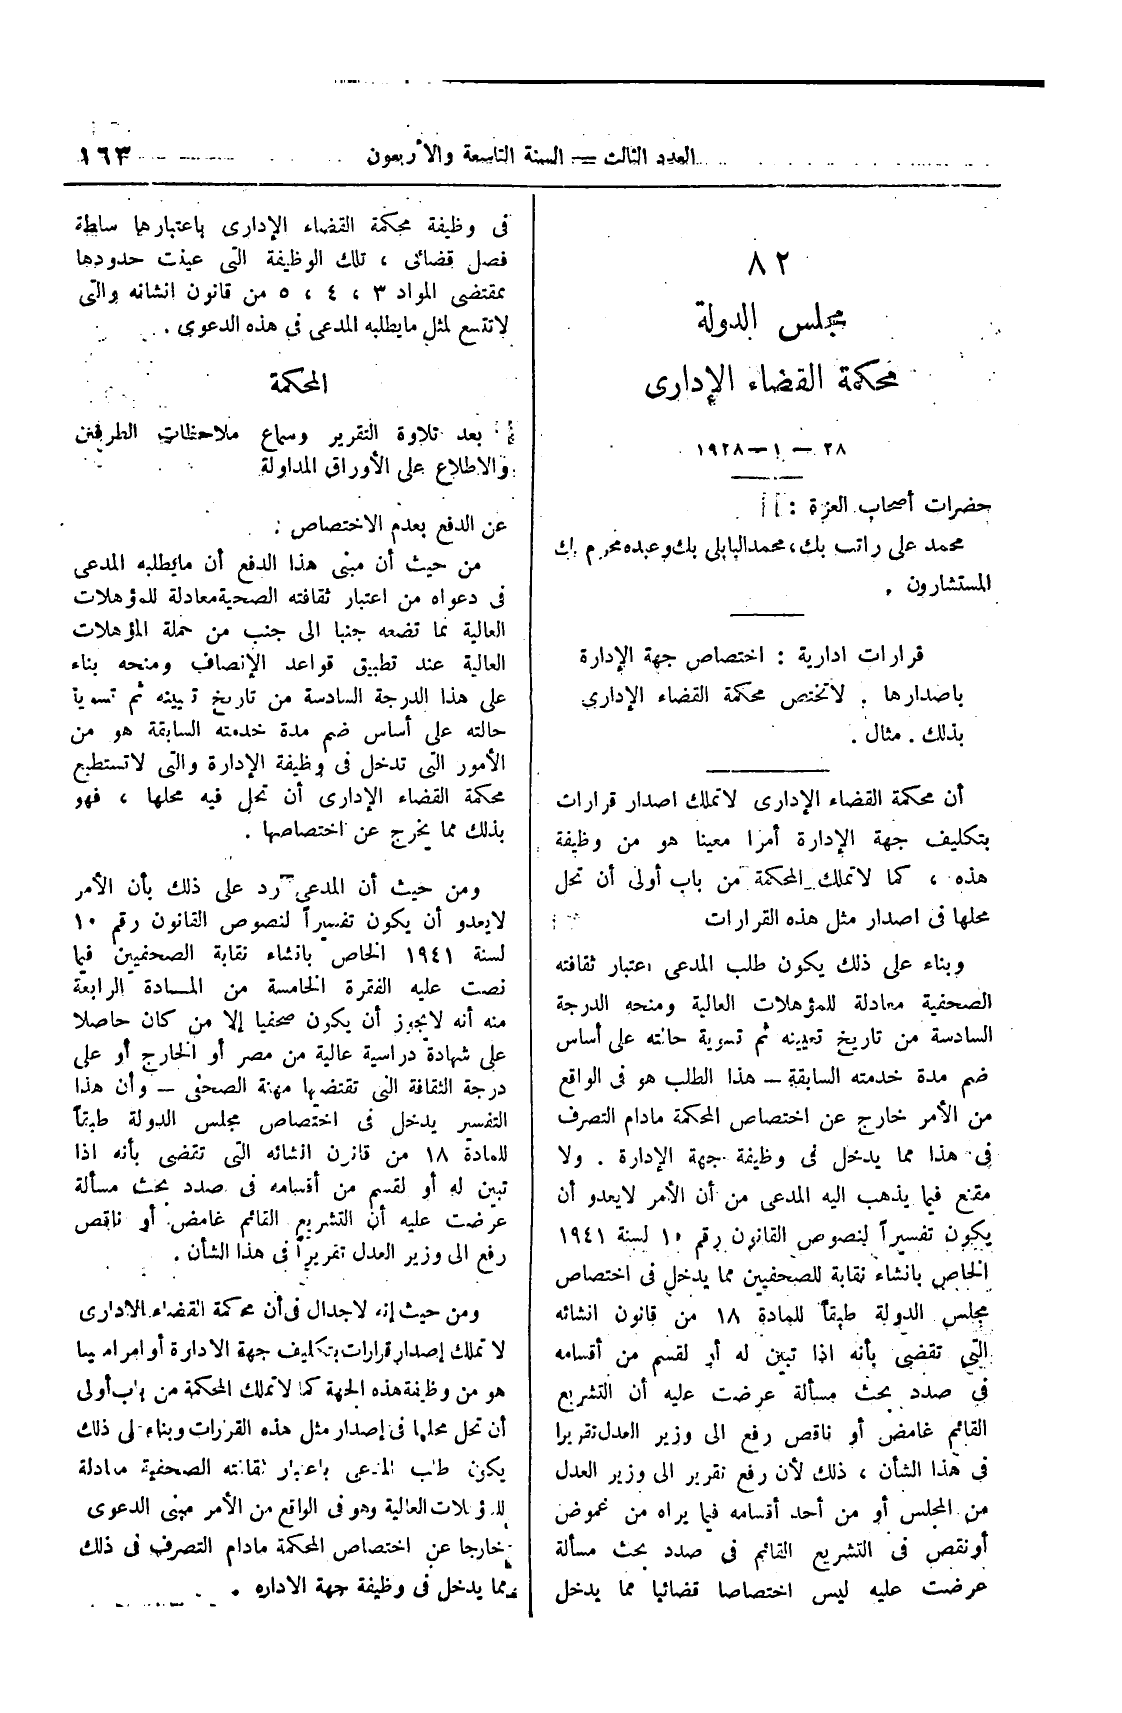 العدد الثالث — السنة التاسعة والأربعون
١٦٣
٨٢
مجلس الدولة
محكمة القضاء الإدارى
٢٨ — ١ — ١٩٢٨
حضرات أصحاب العزة :
محمد على راتب بك، محمد البابلى بك وعبده محرم بك
المستشارون .
قرارات ادارية : اختصاص جهة الإدارة
باصدارها . لاتختص محكمة القضاء الإدارى
بذلك . مثال .
أن محكمة القضاء الإدارى لاتملك اصدار قرارات
بتكليف جهة الإدارة أمرا معينا هو من وظيفة
هذه ، كما لاتملك المحكمة من باب أولى أن تحل
محلها فى اصدار مثل هذه القرارات
وبناء على ذلك يكون طلب المدعى اعتبار ثقافته
الصحفية معادلة للمؤهلات العالية ومنحه الدرجة
السادسة من تاريخ تعيينه ثم تسوية حالته على أساس
ضم مدة خدمته السابقة — هذا الطلب هو فى الواقع
من الأمر خارج عن اختصاص المحكمة مادام التصرف
فى هذا مما يدخل فى وظيفة جهة الإدارة . ولا
مقنع فيما يذهب اليه المدعى من أن الأمر لايعدو أن
يكون تفسيراً لنصوص القانون رقم ١٠ لسنة ١٩٤١
الخاص بانشاء نقابة للصحفيين مما يدخل فى اختصاص
مجلس الدولة طبقاً للمادة ١٨ من قانون انشائه
التى تقضى بأنه اذا تبين له أو لقسم من أقسامه
فى صدد بحث مسألة عرضت عليه أن التشريع
القائم غامض أو ناقص رفع الى وزير العدل تقريرا
فى هذا الشأن ، ذلك لأن رفع تقرير الى وزير العدل
من المجلس أو من أحد أقسامه فيما يراه من غموض
أو نقص فى التشريع القائم فى صدد بحث مسألة
عرضت عليه ليس اختصاصا قضائيا مما يدخل
فى وظيفة محكمة القضاء الإدارى باعتبارها سلطة
فصل قضائى ، تلك الوظيفة التى عينت حدودها
بمقتضى المواد ٣ ، ٤ ، ٥ من قانون انشائه والتى
لاتتسع لمثل مايطلبه المدعى فى هذه الدعوى .
المحكمة
بعد تلاوة التقرير وسماع ملاحظات الطرفين
والاطلاع على الأوراق المداولة
عن الدفع بعدم الاختصاص :
من حيث أن مبنى هذا الدفع أن مايطلبه المدعى
فى دعواه من اعتبار ثقافته الصحية معادلة للمؤهلات
العالية مما تضعه جنبا الى جنب من حملة المؤهلات
العالية عند تطبيق قواعد الإنصاف ومنحه بناء
على هذا الدرجة السادسة من تاريخ تعيينه ثم تسوية
حالته على أساس ضم مدة خدمته السابقة هو من
الأمور التى تدخل فى وظيفة الإدارة والتى لاتستطيع
محكمة القضاء الإدارى أن تحل فيه محلها ، فهو
بذلك مما يخرج عن اختصاصها .
ومن حيث أن المدعى رد على ذلك بأن الأمر
لايعدو أن يكون تفسيراً لنصوص القانون رقم ١٠
لسنة ١٩٤١ الخاص بانشاء نقابة الصحفيين فيما
نصت عليه الفقرة الخامسة من المادة الرابعة
منه أنه لايجوز أن يكون صحفيا إلا من كان حاصلا
على شهادة دراسية عالية من مصر أو الخارج أو على
درجة الثقافة التى تقتضيها مهنة الصحفى — وأن هذا
التفسير يدخل فى اختصاص مجلس الدولة طبقاً
للمادة ١٨ من قانون انشائه التى تقضى بأنه اذا
تبين له أو لقسم من أقسامه فى صدد بحث مسألة
عرضت عليه أن التشريع القائم غامض أو ناقص
رفع الى وزير العدل تقريراً فى هذا الشأن .
ومن حيث إنه لاجدال فى أن محكمة القضاء الادارى
لا تملك إصدار قرارات بتكليف جهة الادارة أوامر امعينا
هو من وظيفة هذه الجهة كما لا تملك المحكمة من باب أولى
أن تحل محلها فى إصدار مثل هذه القرارات وبناء على ذلك
يكون طلب المدعى باعتبار ثقافته الصحفية معادلة
للمؤهلات العالية وهو فى الواقع من الأمر مبنى الدعوى
خارجا عن اختصاص المحكمة مادام التصرف فى ذلك
مما يدخل فى وظيفة جهة الاداره .